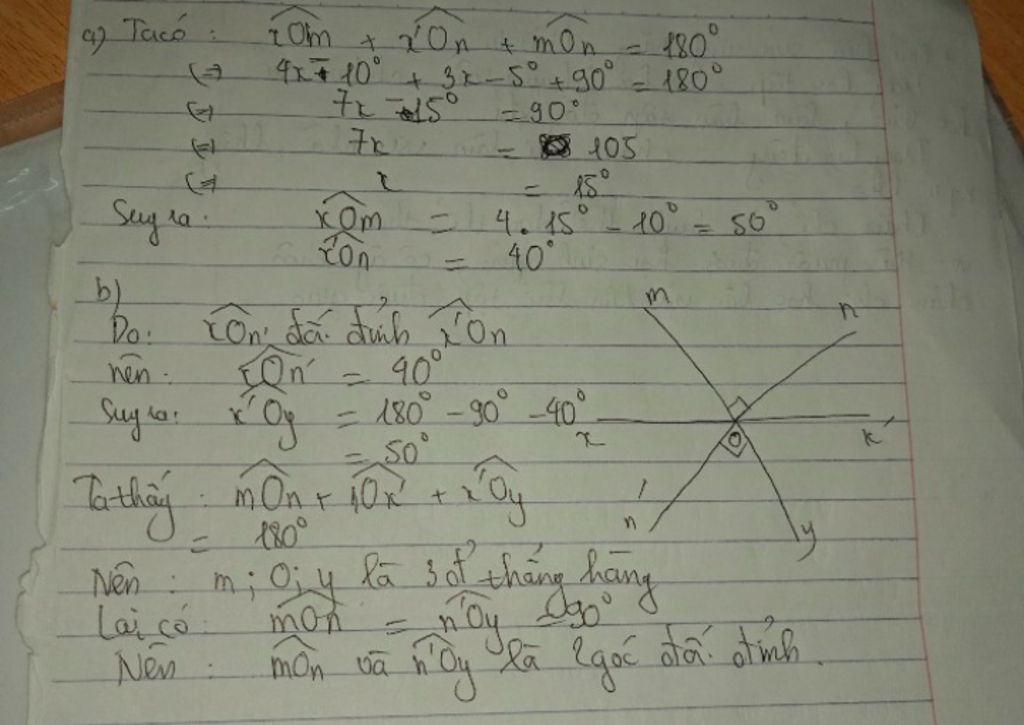 a) Ta có : xOm + x'On + mOn = 180°
<=> 4x - 10° + 3x - 5° + 90° = 180°
<=> 7x - 15° = 90°
<=> 7x = 105
<=> x = 15°
Suy ra : xOm = 4. 15° - 10° = 50°
x'On = 40°
b)
Do : xOn' đối đỉnh x'On
nên : xOn' = 90°
Suy ra : x'Oy = 180° - 90° - 40°
= 50°
Ta thấy : mOn + nOx' + x'Oy
= 180°
Nên : m ; O ; y là 3 đ' thẳng hàng
Lại có : mOn = n'Oy = 90°
Nên : mOn và n'Oy là 2 góc đối đỉnh.
m
n
x
x'
O
n'
y